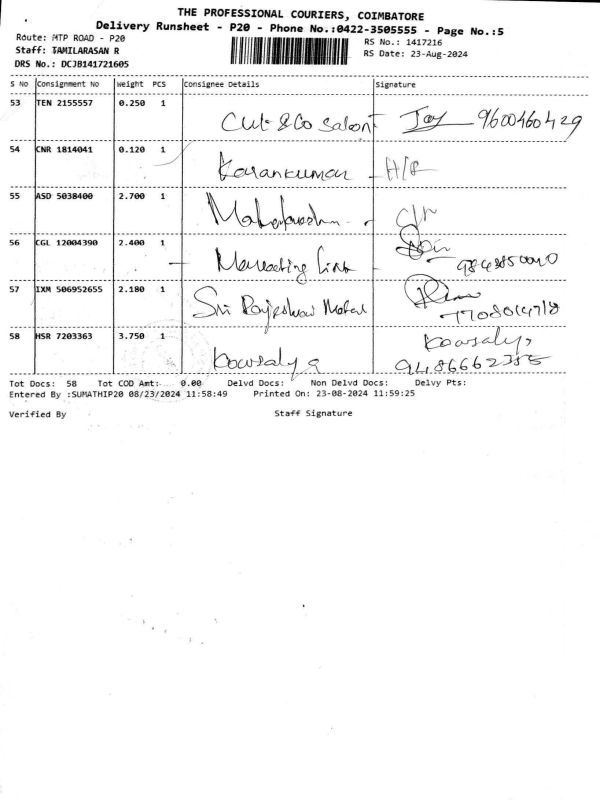 THE PROFESSIONAL COURIERS, COIMBATORE
Delivery Runsheet - P20 - Phone No.:0422-3505555 - Page No.:5
Route: MTP ROAD - P20
RS No.: 1417216
Staff: TAMILARASAN R
RS Date: 23-Aug-2024
DRS No.: DCJB141721605
S No Consignment No Weight PCS Consignee Details Signature
53 TEN 2155557 0.250 1
Cut & Co Saloon Joy 9600460429
54 CNR 1814041 0.120 1
Karankumar
55 ASD 5038400 2.700 1
56 CGL 12004390 2.400 1
Marketing Link
57 IXM 506952655 2.180 1
Sri Rajeshwari Metal
58 HSR 7203363 3.750 1
Kowsalya Kowsalya
9486662385
Tot Docs: 58 Tot COD Amt: 0.00 Delvd Docs: Non Delvd Docs: Delvy Pts:
Entered By :SUMATHIP20 08/23/2024 11:58:49 Printed On: 23-08-2024 11:59:25
Verified By Staff Signature